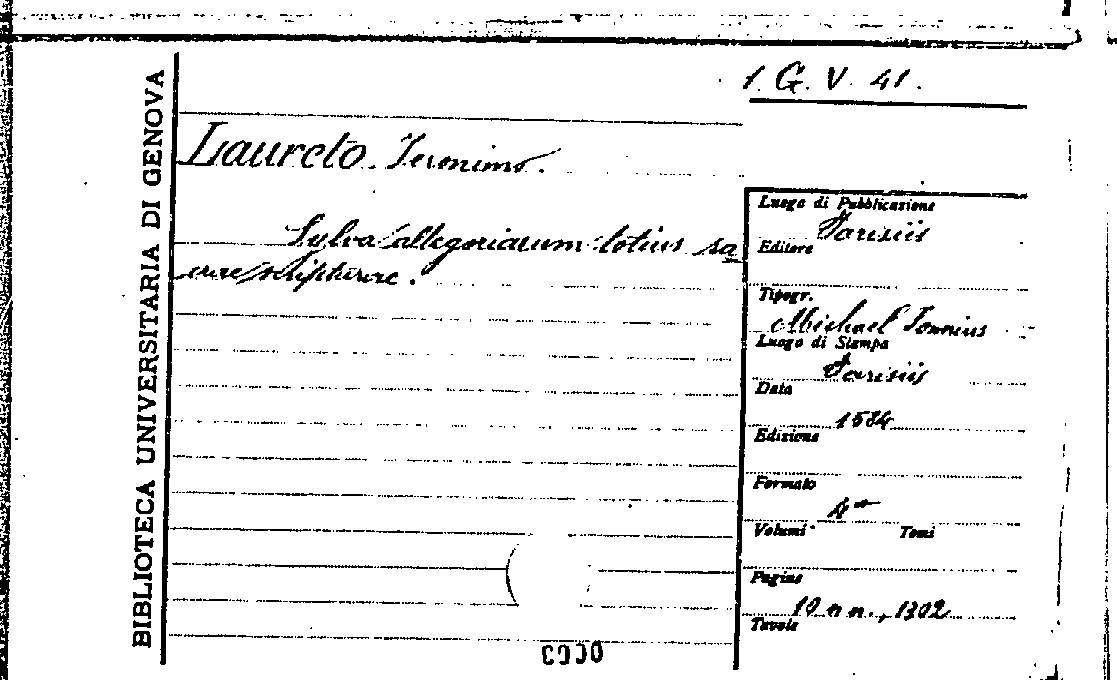 1. G. V. 41.
BIBLIOTECA UNIVERSITARIA DI GENOVA
Laureto Jeronimo.
Sylva allegoriarum totius sa
crae scripturae.
Luogo di Pubblicazione
Parisiis
Editore
Tipogr.
Michael Sonnius
Luogo di Stampa
Parisiis
Data
1584
Edizione
Formato
4°
Volumi Tomi
Pagine
10 n n., 1302
Tavole
0003